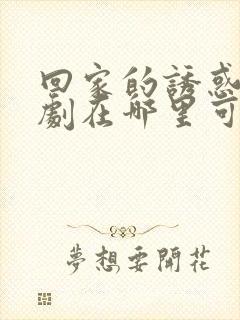 回家的誘惑
劇在哪里可
夢想要開花